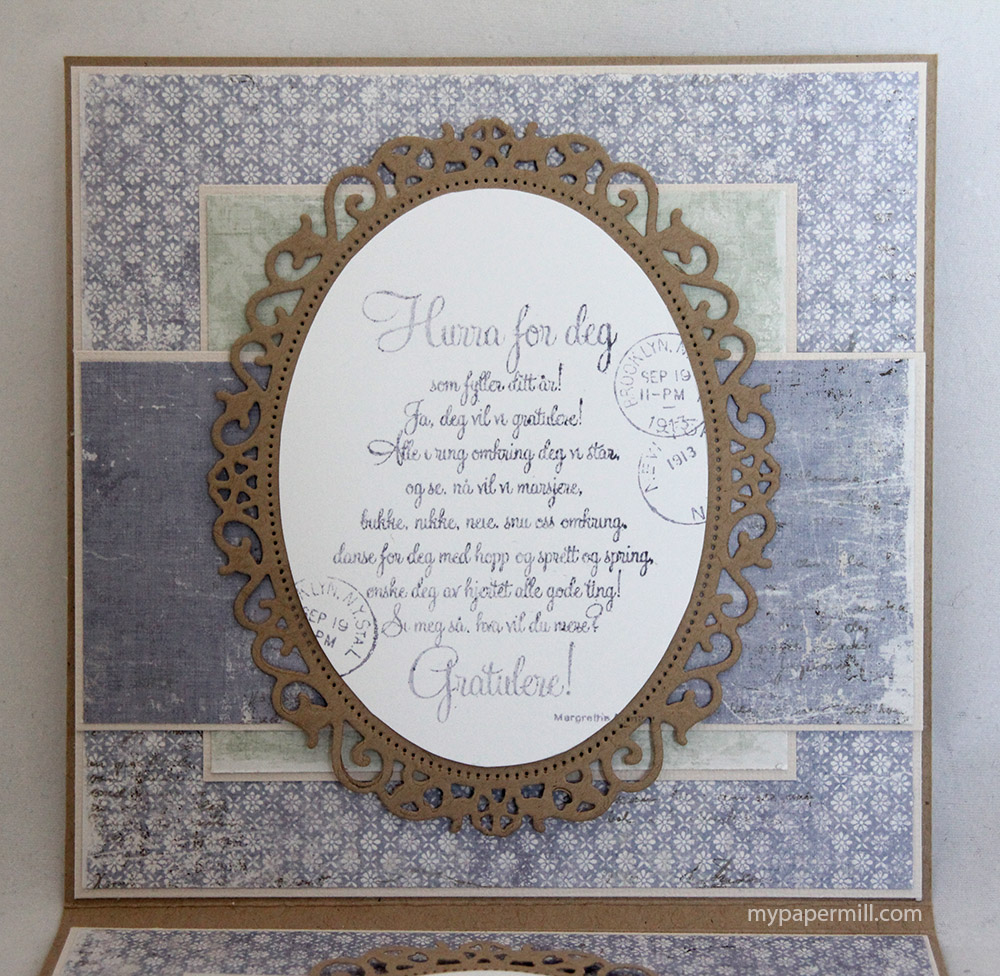 Hurra for deg
som fyller ditt år!
Ja, deg vil vi gratulere!
Alle i ring omkring deg vi står,
og se, nå vil vi marsjere,
bukke, nikke, neie, snu oss omkring,
danse for deg med hopp og sprett og spring,
ønske deg av hjertet alle gode ting!
Si meg så, hva vil du mere?
Gratulere!
Margrethe
BROOKLYN, N.
SEP 19
11-PM
1913
NEW
1913
N
KLYN, N.Y. STA.
SEP 19
PM
mypapermill.com